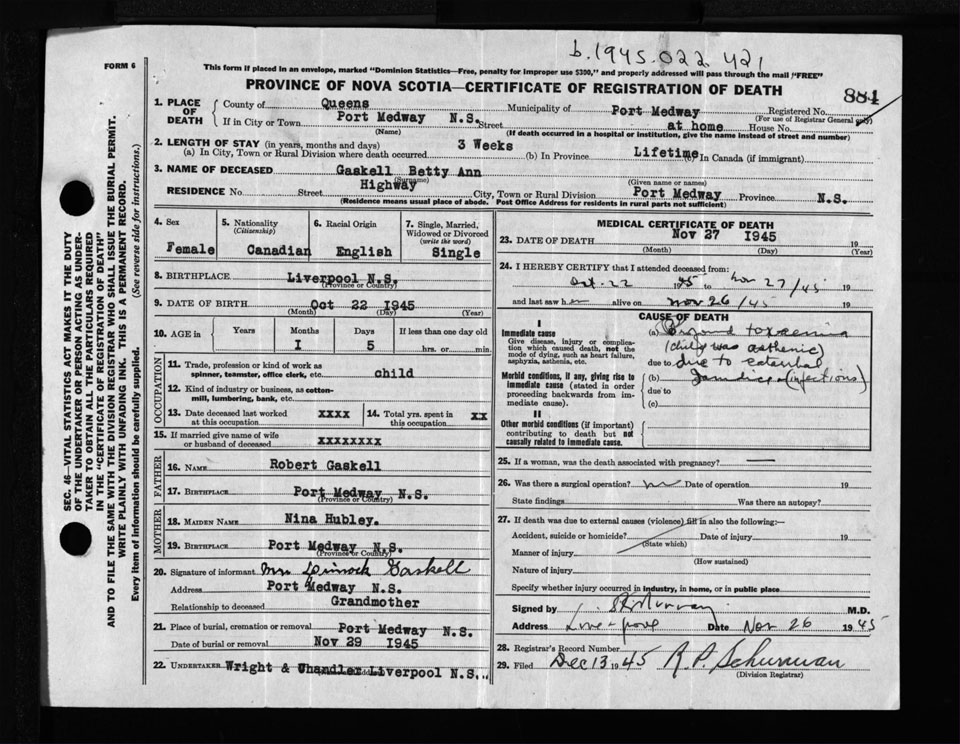 b.1945.022421
FORM 6
This form if placed in an envelope, marked "Dominion Statistics—Free, penalty for improper use $300," and properly addressed will pass through the mail "FREE"
PROVINCE OF NOVA SCOTIA—CERTIFICATE OF REGISTRATION OF DEATH
884
1. PLACE OF DEATH County of Queens Municipality of Port Medway Registered No. (For use of Registrar General only)
If in City or Town Port Medway N.S. (Name) Street at home House No.
(If death occurred in a hospital or institution, give the name instead of street and number)
2. LENGTH OF STAY (in years, months and days)
(a) In City, Town or Rural Division where death occurred 3 Weeks (b) In Province Lifetime (c) In Canada (if immigrant)
3. NAME OF DECEASED Gaskell Betty Ann
(Surname) (Given name or names)
RESIDENCE No. Street Highway City, Town or Rural Division Port Medway Province N.S.
(Residence means usual place of abode. Post Office Address for residents in rural parts not sufficient)
4. Sex Female
5. Nationality (Citizenship) Canadian
6. Racial Origin English
7. Single, Married, Widowed or Divorced (write the word) Single
8. BIRTHPLACE Liverpool N.S.
(Province or Country)
9. DATE OF BIRTH Oct 22 1945
(Month) (Day) (Year)
10. AGE in Years Months Days If less than one day old
I 5 hrs. or min.
OCCUPATION
11. Trade, profession or kind of work as spinner, teamster, office clerk, etc. child
12. Kind of industry or business, as cotton-mill, lumbering, bank, etc.
13. Date deceased last worked at this occupation xxxx
14. Total yrs. spent in this occupation xx
15. If married give name of wife or husband of deceased xxxxxxxx
FATHER
16. NAME Robert Gaskell
17. BIRTHPLACE Port Medway N.S.
(Province or Country)
MOTHER
18. MAIDEN NAME Nina Hubley.
19. BIRTHPLACE Port Medway N.S.
(Province or Country)
20. Signature of informant Mrs Dimock Gaskell
Address Port Medway N.S.
Relationship to deceased Grandmother
21. Place of burial, cremation or removal Port Medway N.S.
Date of burial or removal Nov 29 1945
22. UNDERTAKER Wright & Chandler Liverpool N.S.
MEDICAL CERTIFICATE OF DEATH
23. DATE OF DEATH Nov 27 1945 19
(Month) (Day) (Year)
24. I HEREBY CERTIFY that I attended deceased from:
Oct. 22 1945 to Nov 27/45 19
and last saw her alive on Nov 26/45 19
CAUSE OF DEATH
I
Immediate cause
Give disease, injury or complication which caused death, not the mode of dying, such as heart failure, asphyxia, asthenia, etc.
(a)
(child was asthenic)
due to due to
Morbid conditions, if any, giving rise to immediate cause (stated in order proceeding backwards from immediate cause).
(b) Jaundice (infections)
due to
(c)
II
Other morbid conditions (if important) contributing to death but not causally related to immediate cause.
25. If a woman, was the death associated with pregnancy? —
26. Was there a surgical operation? no Date of operation 19
State findings Was there an autopsy?
27. If death was due to external causes (violence) fill in also the following:—
Accident, suicide or homicide? Date of injury 19
(State which)
Manner of injury
(How sustained)
Nature of injury
Specify whether injury occurred in industry, in home, or in public place
Signed by Murray M.D.
Address Date Nov 26 1945
28. Registrar's Record Number
29. Filed Dec 13 1945 R. P. Schurman
(Division Registrar)
SEC. 46—VITAL STATISTICS ACT MAKES IT THE DUTY
OF THE UNDERTAKER OR PERSON ACTING AS UNDER-
TAKER TO OBTAIN ALL THE PARTICULARS REQUIRED
IN THE "CERTIFICATE OF REGISTRATION OF DEATH"
AND TO FILE THE SAME WITH THE DIVISION REGISTRAR WHO SHALL ISSUE THE BURIAL PERMIT.
WRITE PLAINLY WITH UNFADING INK. THIS IS A PERMANENT RECORD.
Every item of information should be carefully supplied. (See reverse side for instructions.)